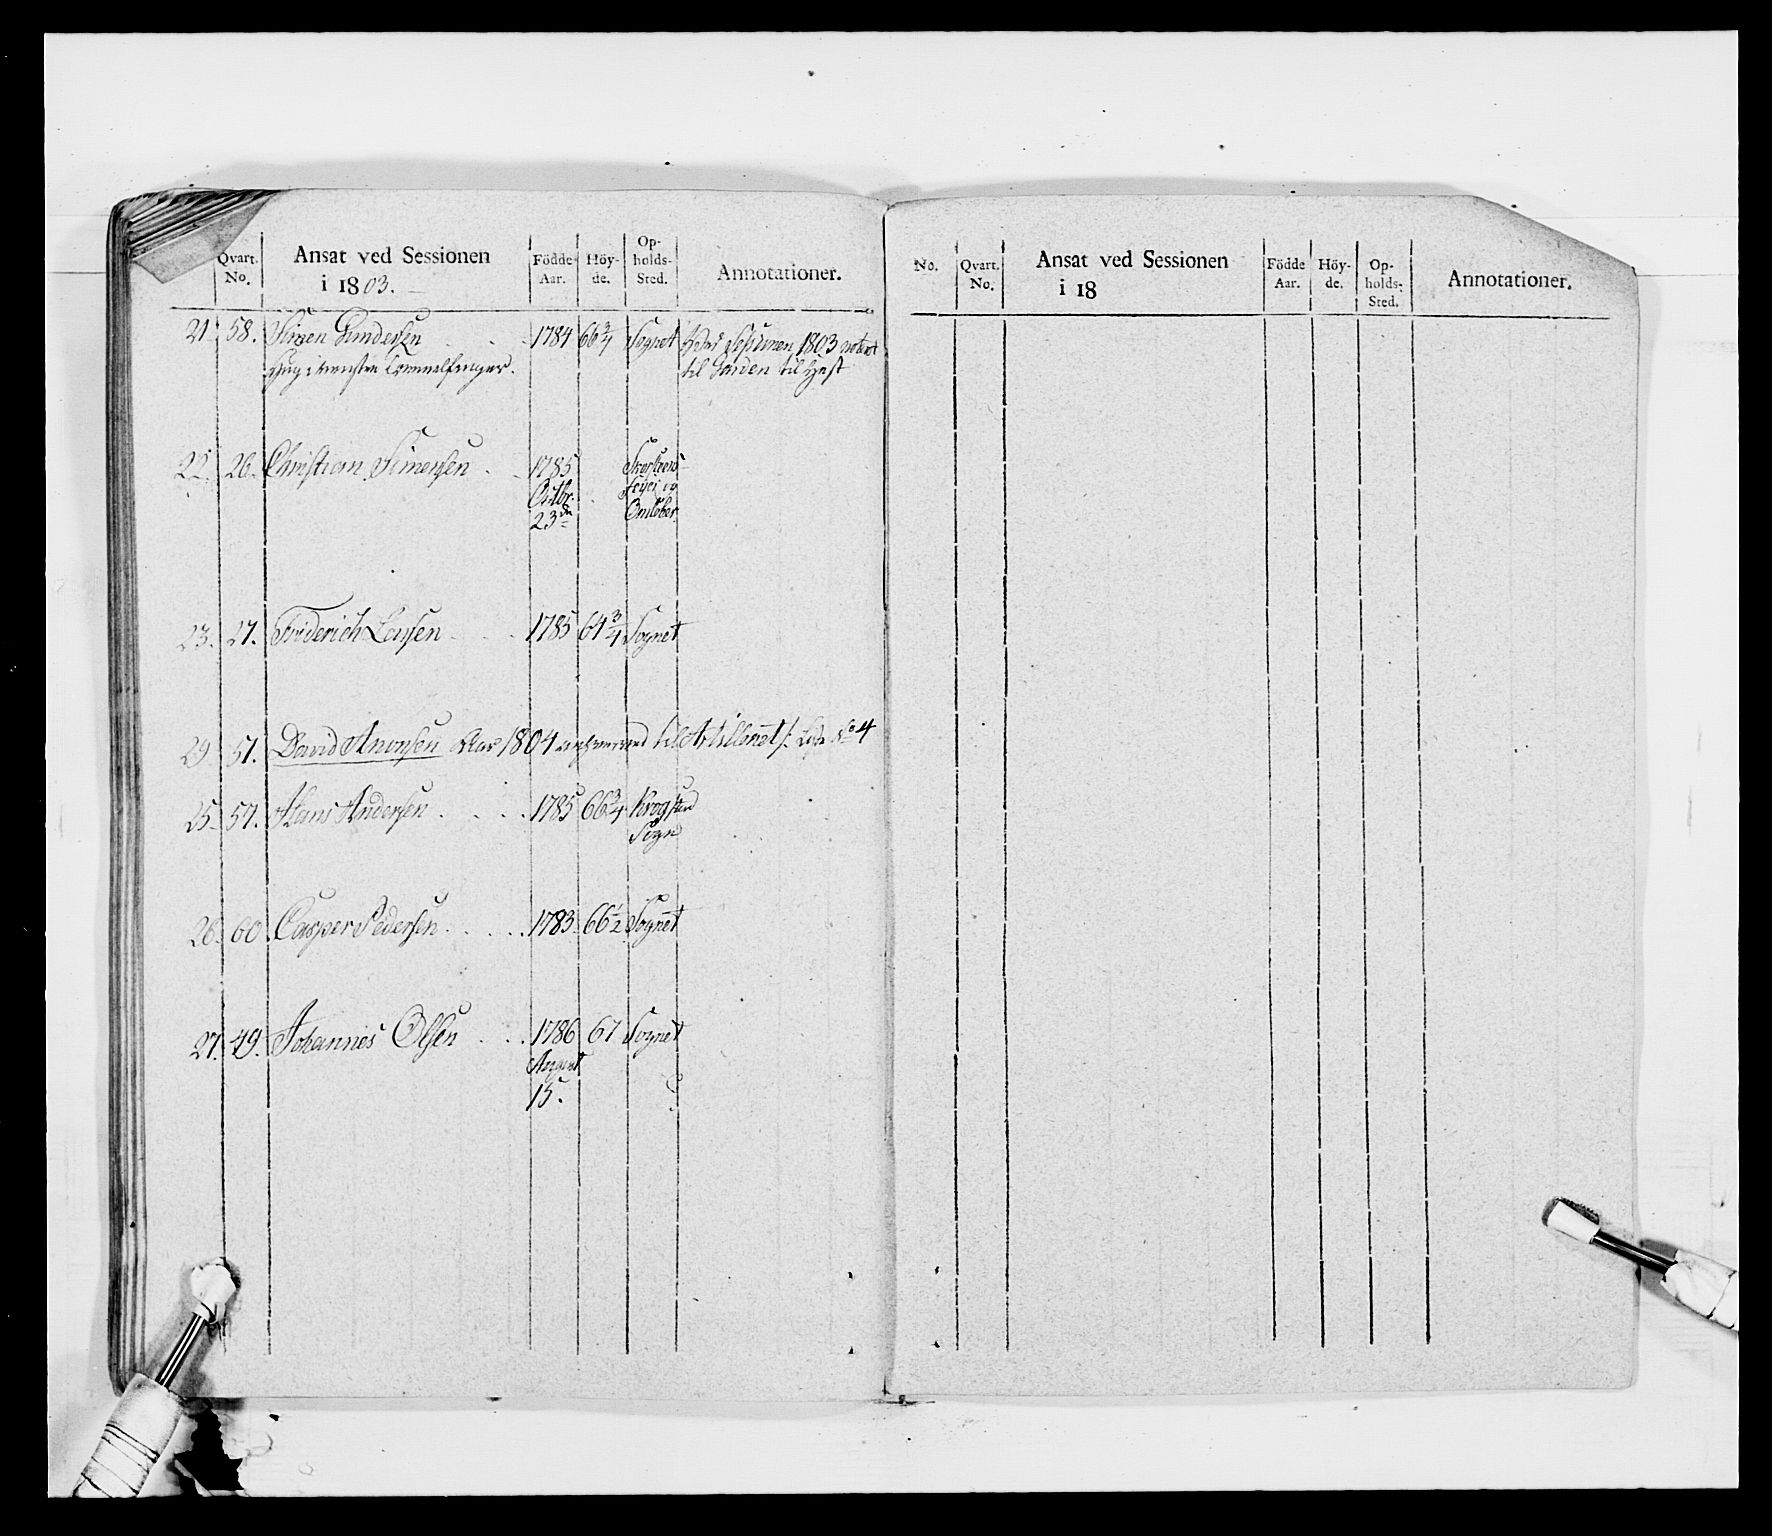 Qvart. No. Ansat ved Sessionen i 1803. Födde Aar. Höy-de. Op-holds-Sted. Annotationer.
21 58. Simen Gundersen 1784 66 3/4 Sognet Ved Sessionen 1803 noteret
i venstre til Garden til Hest
22. 26. Christian Simensen 1785
Octbr.
23de
23. 27. Friderich Larsen 1785 64 3/4 Sognet
29 51. David Aronsen 1804 til Artilleriet No 4
25. 57. Hans Andersen 1785 66 3/4 Krogstad
Sogn
26. 60 Casper Pedersen 1783 66 1/2 Sognet
27. 49. Johannes Olsen 1786 67 Sognet
August
15.
No. Qvart. No. Ansat ved Sessionen i 18 Födde Aar. Höy-de. Op-holds-Sted. Annotationer.